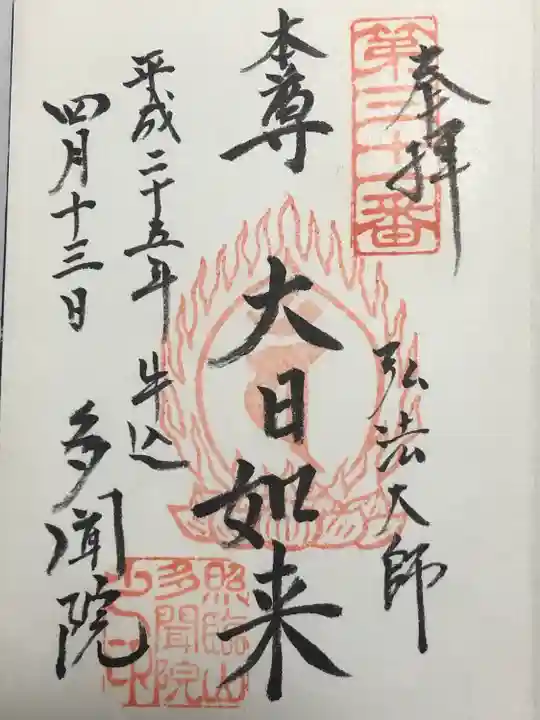 奉拝
第三十一番
弘法大師
本尊
大日如来
平成二十五年
四月十三日
牛込
多聞院
照臨山
多聞院